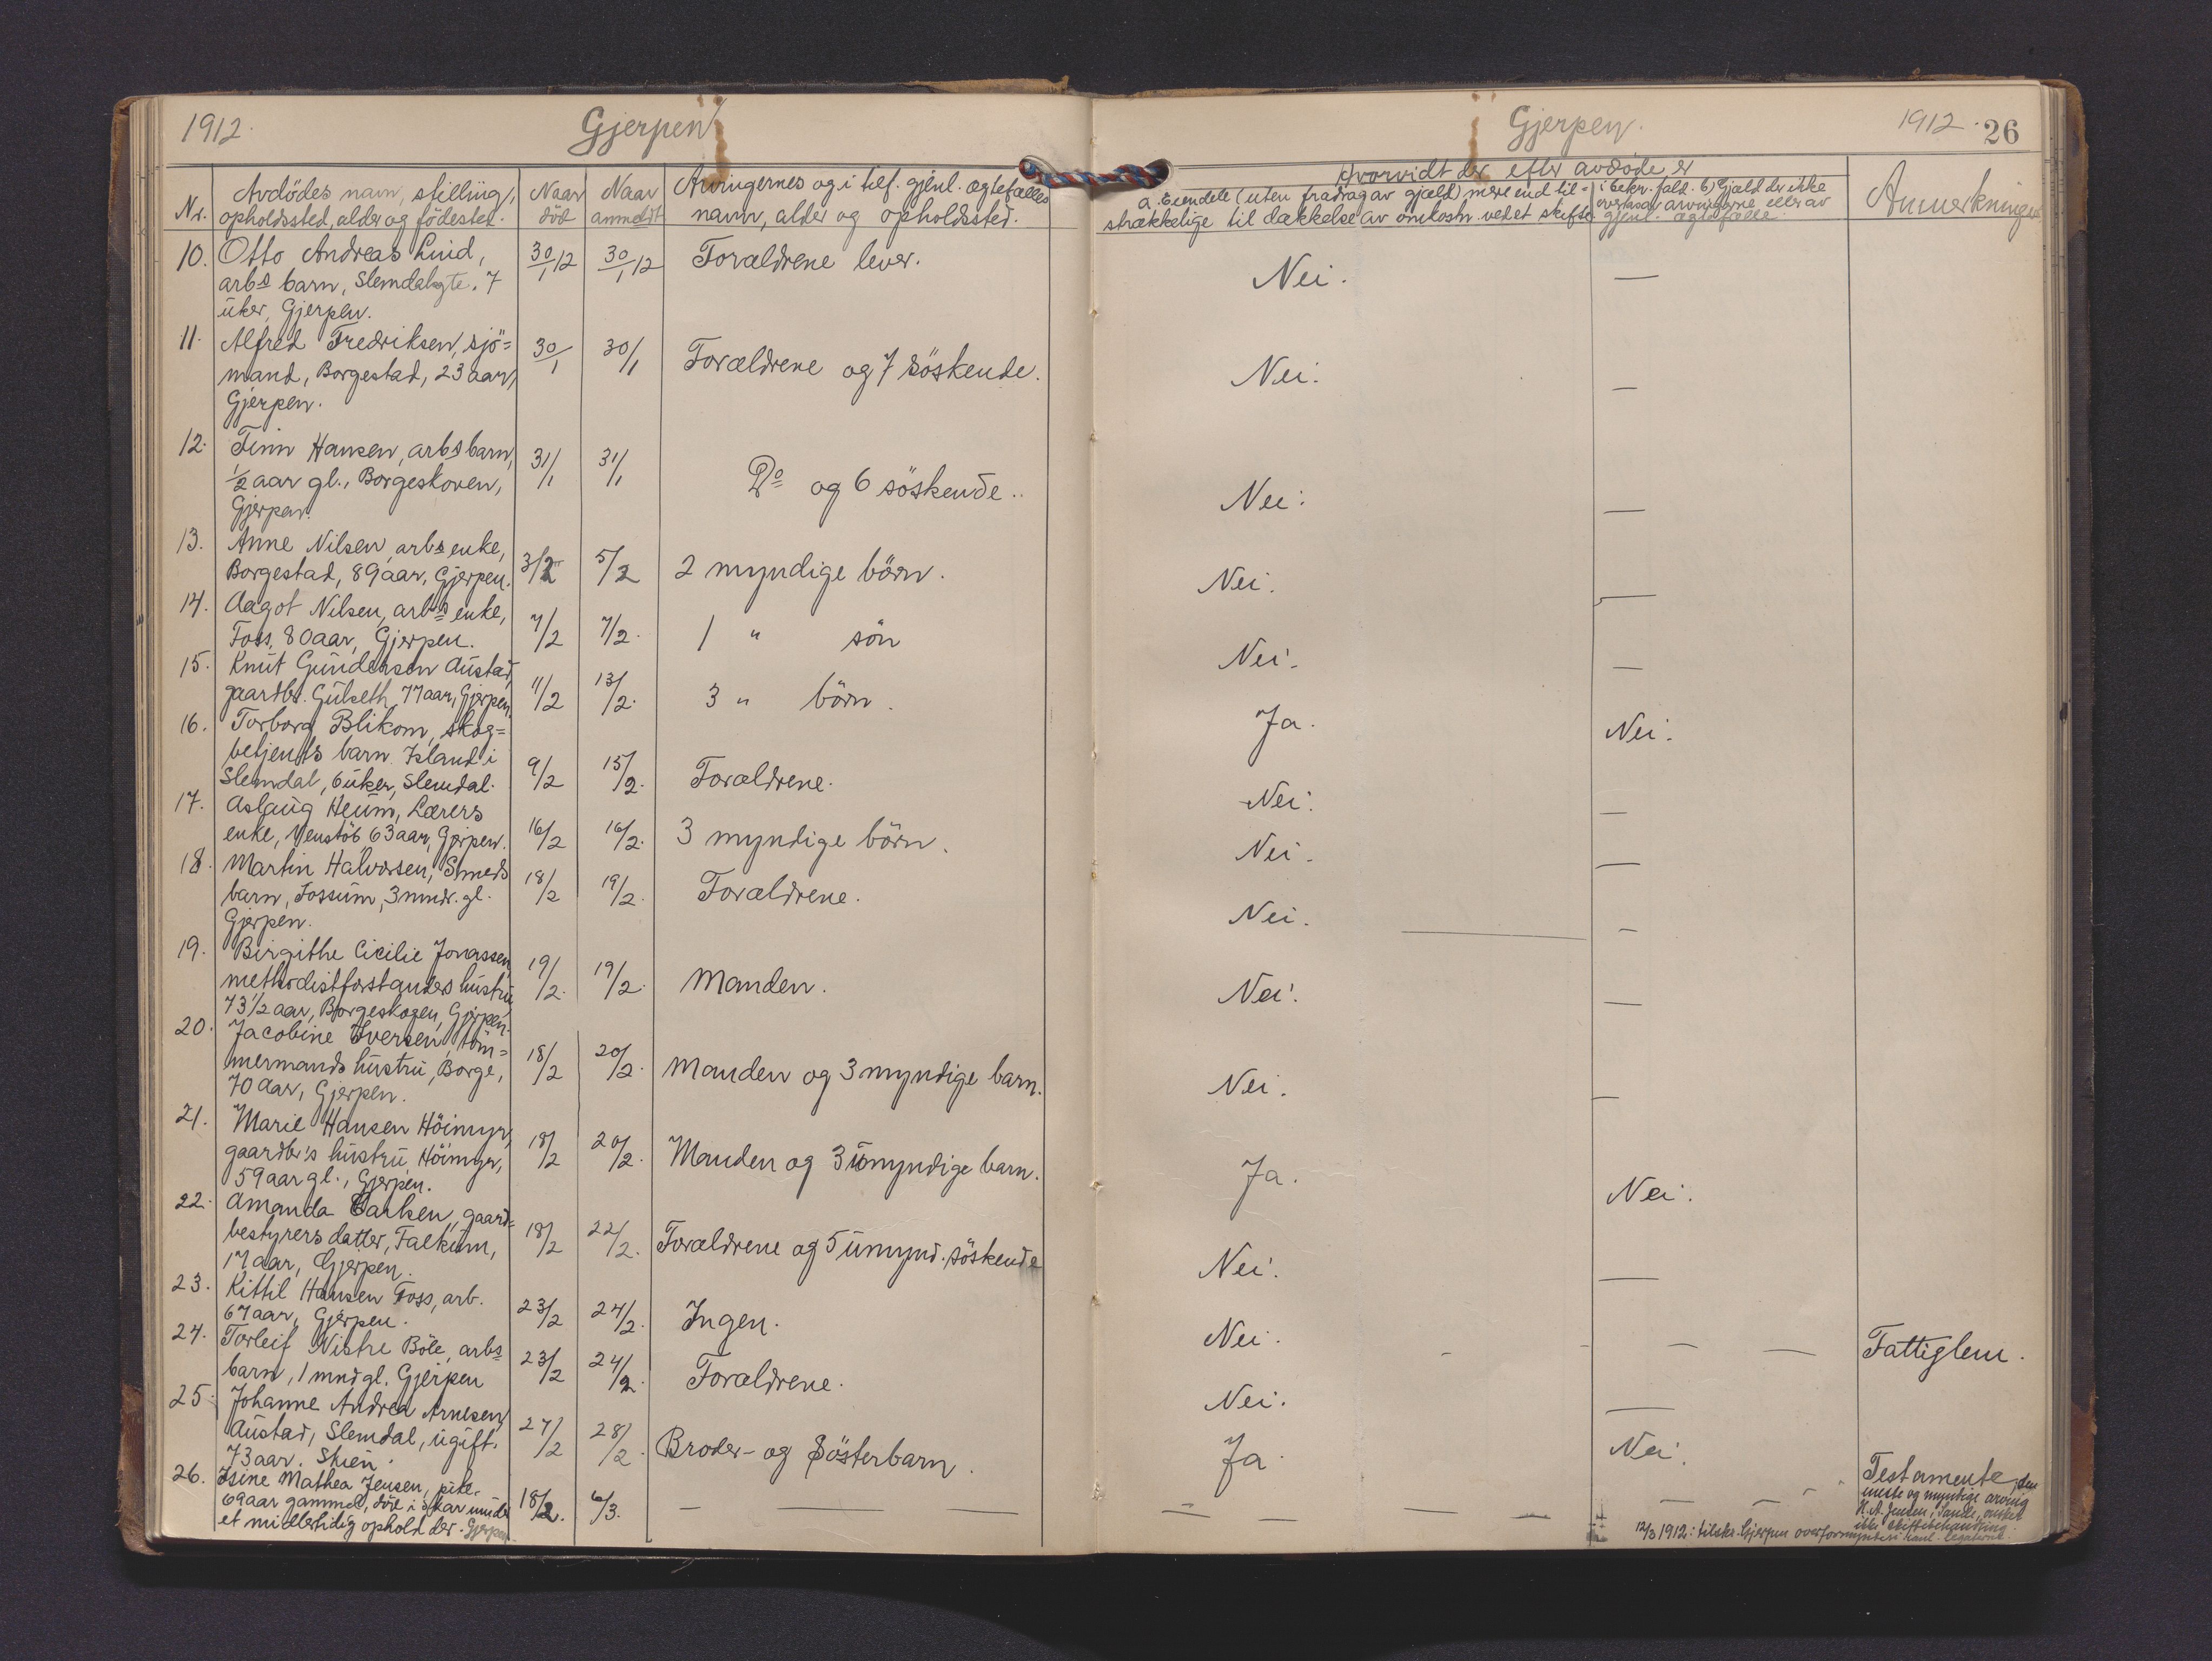 1912.
Gjerpen
Nr.
Avdödes navn, stilling,
opholdssted, alder og födested.
Naar
död
Naar
anmeldt
Arvingernes og i tilf. gjenl. ægtefælles
navn, alder og opholdssted.
10. Otto Andreas Lind, 30/1 12 30/1 12 Forældrene lever.
arbs barn, Slemdalsgte. 7
uker, Gjerpen.
11. Alfred Fredriksen, sjö=
mand, Borgestad, 23 aar, 30/1 30/1 Forældrene og 7 söskende.
Gjerpen.
12. Finn Hansen, arbs barn,
1/2 aar gl., Borgeskoven, 31/1 31/1 Do og 6 söskende..
Gjerpen.
13. Anne Nilsen, arbs enke,
Borgestad, 89 aar, Gjerpen. 3/2 5/2 2 myndige börn.
14. Aagot Nilsen, arbs enke,
Foss, 80 aar, Gjerpen. 7/2 7/2. 1 " sön
15. Knut Gundersen Austad,
gaardbr. Gulseth, 77 aar, Gjerpen. 11/2 13/2. 3 " börn.
16. Torborg Blikom, skog=
betjents barn. Island i
Slemdal, 6 uker, Slemdal. 9/2 15/2. Forældrene.
17. Aslaug Heum, Lærers
enke, Venstöb, 63 aar, Gjerpen. 16/2 16/2. 3 myndige börn.
18. Martin Halvorsen, Smeds
barn, Fossum, 3 mndr. gl. 18/2 19/2. Forældrene.
Gjerpen.
19. Birgithe Cicilie Jonassen,
methodistforstanders hustru, 19/2. 19/2. Manden.
73 1/2 aar, Borgeskogen, Gjerpen.
20. Jacobine Iversen, töm=
mermands hustru, Borge, 18/2 20/2. Manden og 3 myndige barn.
70 aar, Gjerpen.
21. Marie Hansen Höimyr,
gaardbr's hustru, Höimyr, 18/2 20/2. Manden og 3 umyndige barn.
59 aar gl., Gjerpen.
22. Amanda Carlsen, gaard=
bestyrers datter, Falkum, 18/2 22/2. Forældrene og 5 umynd. söskende
17 aar, Gjerpen.
23. Kittil Hansen Foss, arb.
67 aar, Gjerpen. 23/2 24/2. Ingen.
24. Torleif Nistre Böle, arbs
barn, 1 mnd gl. Gjerpen 23/2 24/2. Forældrene.
25. Johanne Andrea Arnesen,
Austad, Slemdal, ugift. 27/2 28/2. Broder- og Sösterbarn.
73 aar. Skien.
26. Isine Mathea Jensen, pike.
69 aar gammel, död i Skar under 18/2. 6/3. —
et midlertidig ophold der. Gjerpen
Gjerpen.
1912. 26
Hvorvidt der efter avdöde er
a. Eiendele (uten fradrag av gjæld) mere end til=
strækkelige til dækkelse av omkostn. ved et skifte
i bekr. fald. b) Gjæld der ikke
overtas av arvingerne eller av
gjenl. ægtefælle.
Anmerkninger
Nei. —
Nei. —
Nei. —
Nei. —
Nei. —
Ja. Nei.
Nei. —
Nei. —
Nei. —
Nei. —
Nei. —
Ja. Nei.
Nei. —
Nei. — — Fattiglem.
Nei. —
Ja. Nei.
— — — — — Testamente, den
eneste og myndige arving
H. A. Jensen, Sande, önsker
ikke skiftebehandling.
12/3 1912: tilskr. Gjerpen overformynderi